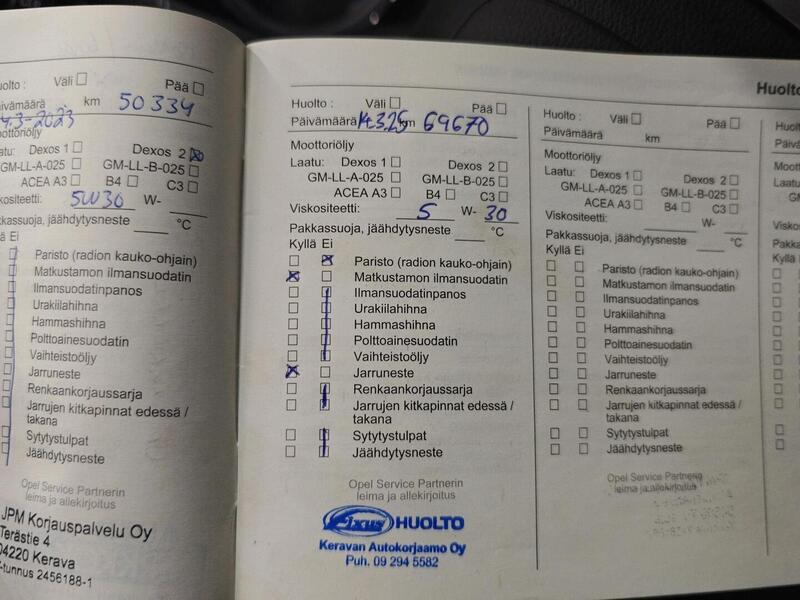 uolto : Väli Pää
äivämäärä km 50 334
4.3-2023
oottoriöljy
Laatu: Dexos 1 Dexos 2
GM-LL-A-025 GM-LL-B-025
ACEA A3 B4 C3
Viskositeetti: 5W30 W-
Pakkassuoja, jäähdytysneste °C
lä Ei
Paristo (radion kauko-ohjain)
Matkustamon ilmansuodatin
Ilmansuodatinpanos
Urakiilahihna
Hammashihna
Polttoainesuodatin
Vaihteistoöljy
Jarruneste
Renkaankorjaussarja
Jarrujen kitkapinnat edessä /
takana
Sytytystulpat
Jäähdytysneste
Opel Service Partnerin
leima ja allekirjoitus
JPM Korjauspalvelu Oy
Terästie 4
04220 Kerava
-tunnus 2456188-1
Huolto : Väli Pää
Päivämäärä 14.3.25 km 69670
Moottoriöljy
Laatu: Dexos 1 Dexos 2
GM-LL-A-025 GM-LL-B-025
ACEA A3 B4 C3
Viskositeetti: 5 W- 30
Pakkassuoja, jäähdytysneste °C
Kyllä Ei
Paristo (radion kauko-ohjain)
Matkustamon ilmansuodatin
Ilmansuodatinpanos
Urakiilahihna
Hammashihna
Polttoainesuodatin
Vaihteistoöljy
Jarruneste
Renkaankorjaussarja
Jarrujen kitkapinnat edessä /
takana
Sytytystulpat
Jäähdytysneste
Opel Service Partnerin
leima ja allekirjoitus
Fixus HUOLTO
Keravan Autokorjaamo Oy
Puh. 09 294 5582
Huolto
Huolto : Väli Pää
Päivämäärä km
Moottoriöljy
Laatu: Dexos 1 Dexos 2
GM-LL-A-025 GM-LL-B-025
ACEA A3 B4 C3
Viskositeetti: W-
Pakkassuoja, jäähdytysneste °C
Kyllä Ei
Paristo (radion kauko-ohjain)
Matkustamon ilmansuodatin
Ilmansuodatinpanos
Urakiilahihna
Hammashihna
Polttoainesuodatin
Vaihteistoöljy
Jarruneste
Renkaankorjaussarja
Jarrujen kitkapinnat edessä /
takana
Sytytystulpat
Jäähdytysneste
Opel Service Partnerin
leima ja allekirjoitus
Huolto
Päivä
Mootto
Laatu:
GM
Viskos
Pakka
Kyllä